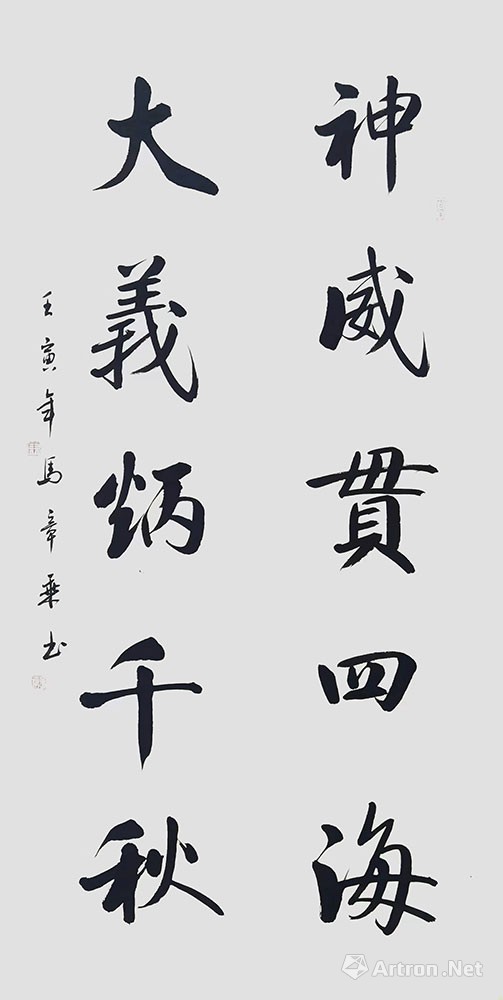 神威貫四海
大義炳千秋
壬寅年馬章乘书
Artron.Net